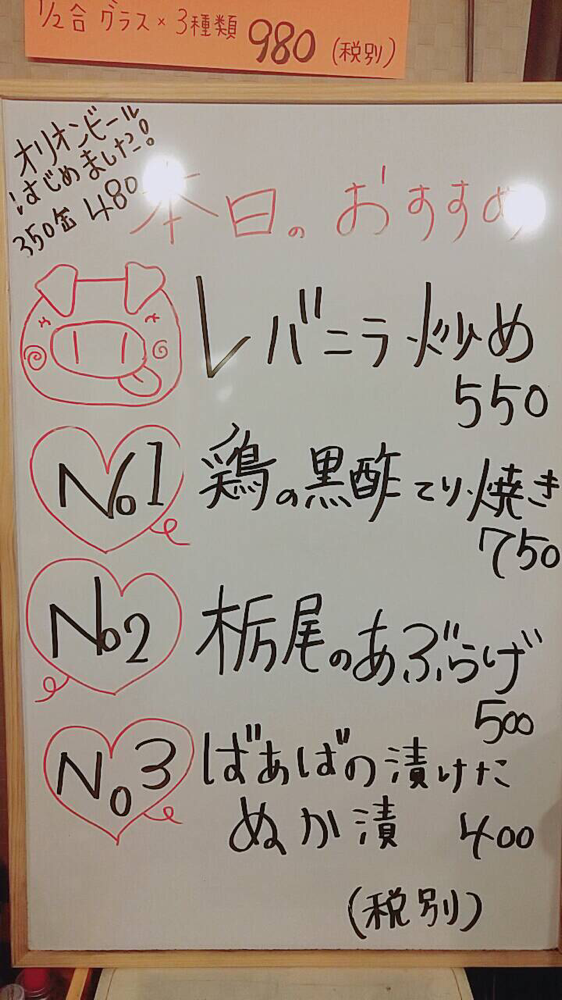 1/2合 グラス×3種類 980 (税別)
オリオンビール
はじめました!
350缶 480
本日のおすすめ
レバニラ炒め
550
No1 鶏の黒酢てり焼き
750
No2 栃尾のあぶらげ
500
No3 ばあばの漬けた
ぬか漬 400
(税別)